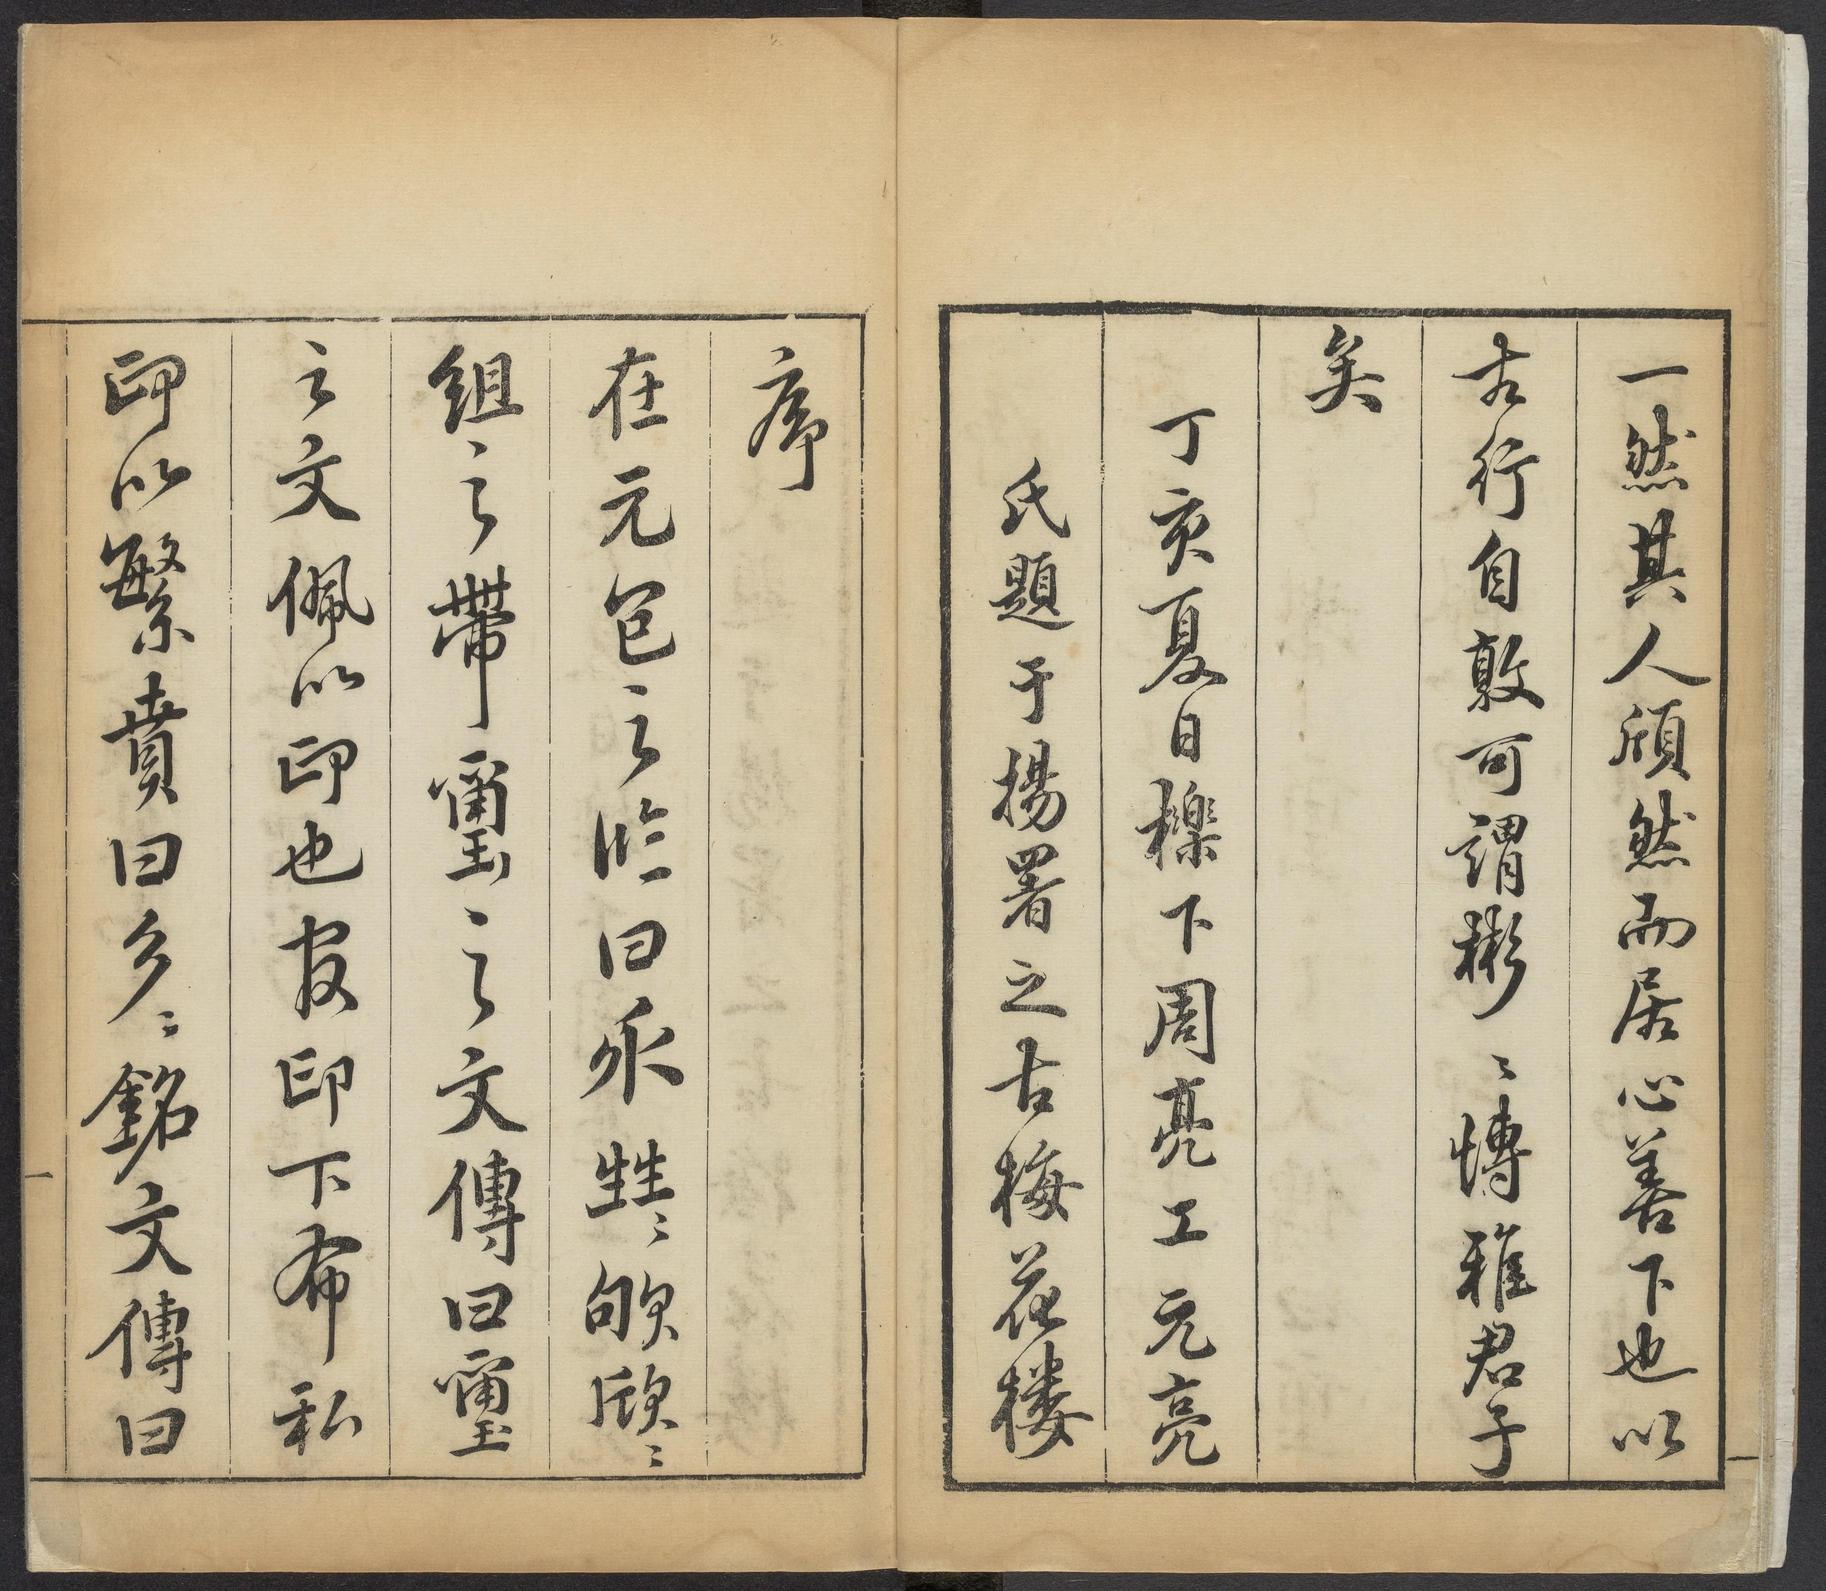 一然其人頎然而居心善下也以
古行自敦可謂彬〻博雅君子
矣
丁亥夏日櫟下周亮工元亮
氏題于揚署之古梅花樓
序
在元包之临曰乑甡〻欨欣〻
組之帶璽之文傳曰璽
之文佩以印也印下布私
印以繁賁曰〻銘文傳曰